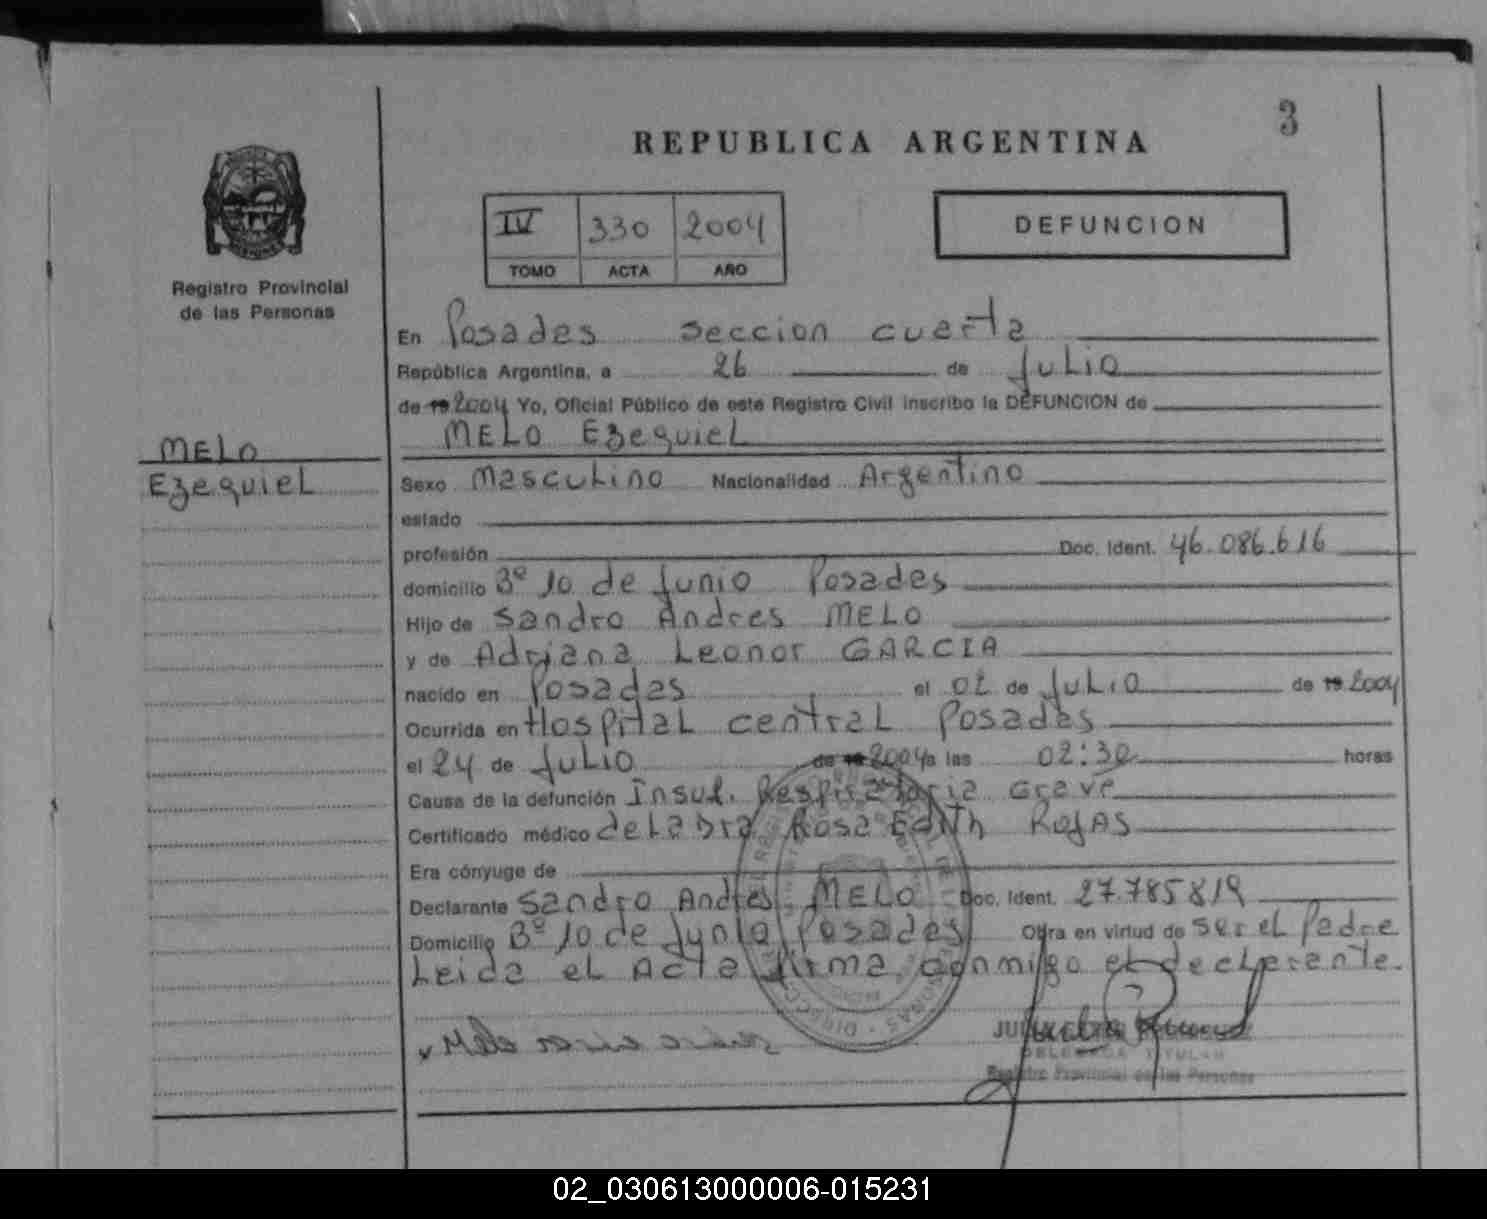 3
REPUBLICA ARGENTINA
IV 330 2004
TOMO ACTA AÑO
DEFUNCION
Registro Provincial
de las Personas
En Posadas seccion cuarta
República Argentina, a 26 de Julio
de 19 2004 Yo, Oficial Público de este Registro Civil inscribo la DEFUNCION de
MELO Ezequiel
MELO
Ezequiel
Sexo Masculino Nacionalidad Argentino
estado
profesión Doc. Ident. 46.086.616
domicilio Bº 10 de Junio Posadas
Hijo de Sandro Andres MELO
y de Adriana Leonor GARCIA
nacido en Posadas el 02 de Julio de 19 2004
Ocurrida en Hospital central Posadas
el 24 de Julio de 19 2004 a las 02:30 horas
Causa de la defunción Insuf. Respiratoria Grave
Certificado médico de Labra Rosa Edith ROJAS
Era cónyuge de
Declarante Sandro Andres MELO Doc. Ident. 27.785.819
Domicilio Bº 10 de Junio Posadas Obra en virtud de ser el Padre
Leida el Acta firma conmigo el declarante.
DELEGADA TITULAR
Registro Provincial de las Personas
02_030613000006-015231